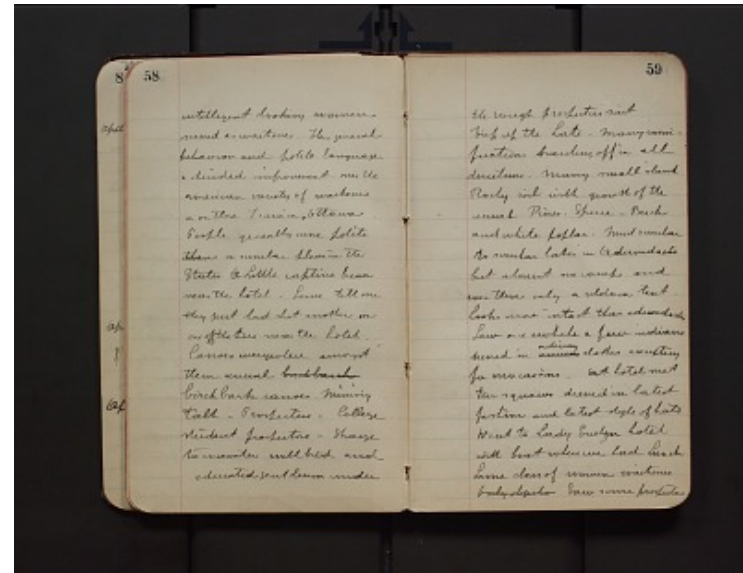 8
April
58
intelligent looking women
used as waitress. The general
behavior and polite language
a decided improvement over the
American variety of
on the Ottawa
People generally more polite
than a similar place in the
States. A little captive bear
near the hotel. Same tell me
they just had shot mother on
one of the near the hotel.
Canoes everywhere amongst
them several birch bark
birch bark canoes. Mining
Talk - Prospectors - College
student prospectors - Strange
to encounter well bred and
educated gentlemen under
59
the rough prospectors suit
Trip up the Lake - Many rami-
fications branching off in all
directions. Many small island
Rocky with growth of the
usual Pines. Spruce - Birch
and white poplar. Much similar
to similar lakes in Adirondacks
but almost no camps and
there only a tent
Looks more intact than adirondacks
Saw once in a while a few indians
dressed in ordinary clothes excepting
for moccasins. At hotel met
two squaws dressed in latest
fashion and latest style of hats
Went to Lady Evelyn hotel
with boat where we had lunch
Same class of women waitress
Saw some prospectors